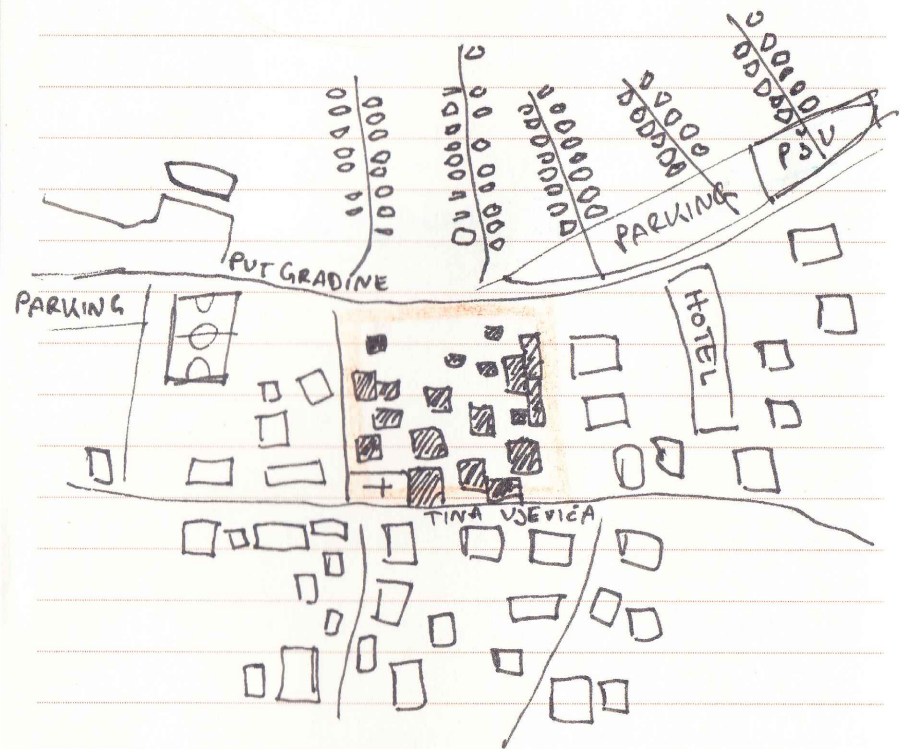 PARKING
PUT GRADINE
PARKING
HOTEL
TINA UJEVIĆA